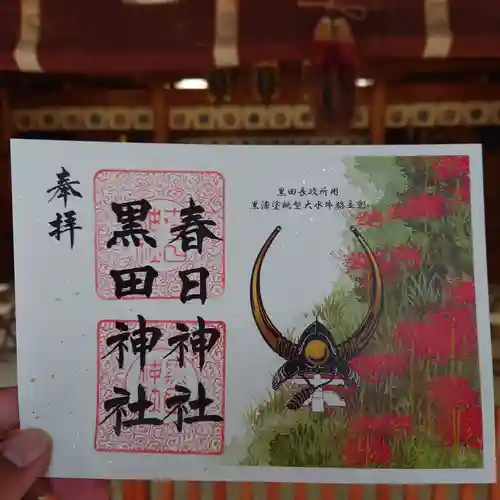 奉拝
春日神社
黒田神社
黒田長政所用
黒漆塗桃型大水牛脇立兜